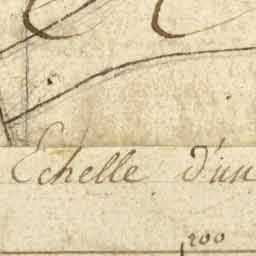 Echelle d'un
200